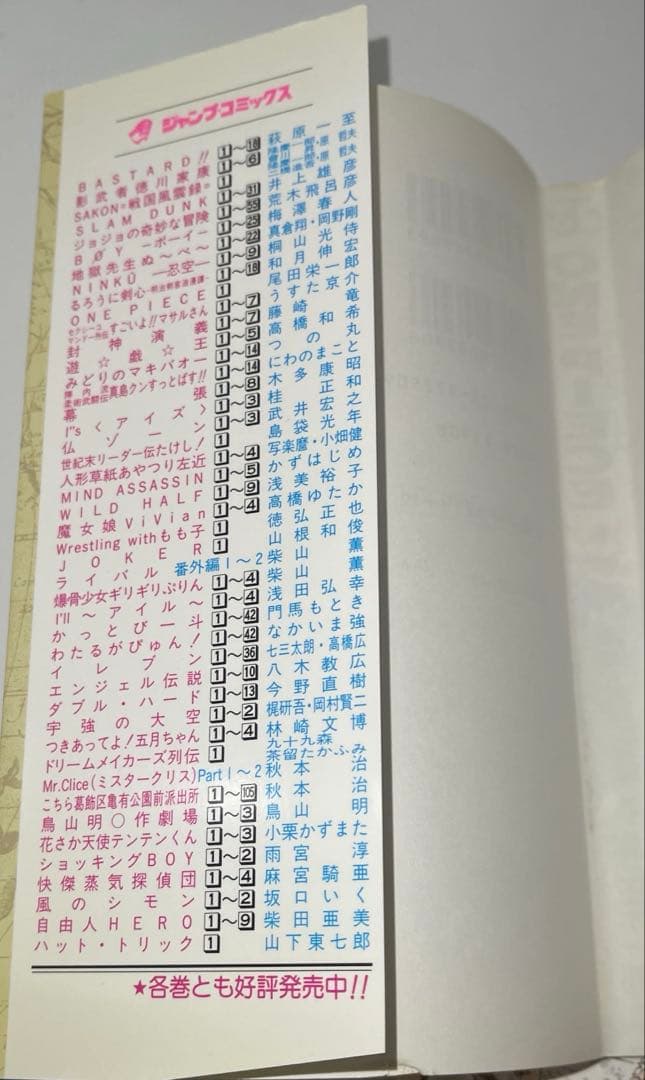 ジャンプ・コミックス
BASTARD!! 1~18 萩原一至
影武者徳川家康 1~6 隆慶一郎・原哲夫
SAKON-戦国風雲録- 1
SLAM DUNK 1~31 井上雄彦
ジョジョの奇妙な冒険 1~55 荒木飛呂彦
BØY-ボーイ- 1~25 梅澤春人
地獄先生ぬ~べ~ 1~22 真倉翔・岡野剛
NINKŪ―忍空― 1~9 桐山光侍
るろうに剣心-明治剣客浪漫譚- 1~18 和月伸宏
ONE PIECE 尾田栄一郎
セクシーコマンドー外伝すごいよ!!マサルさん 1~7 うすた京介
封神演義 1~7 藤崎竜
遊☆戯☆王 1~5 高橋和希
みどりのマキバオー 1~14 つの丸
陣内流柔術武闘伝真島クンすっとばす!! 1~14 にわのまこと
幕張 1~8 木多康昭
I"s〈アイズ〉 1~3 桂正和
仏ゾーン 1~3 武井宏之
世紀末リーダー伝たけし! 1 島袋光年
人形草紙あやつり左近 1~4 写楽麿・小畑健
MIND ASSASSIN 1~5 かずはじめ
WILD HALF 1~9 浅美裕子
魔女娘ViVian 1~4 高橋ゆたか
Wrestling withもも子 1 徳弘正也
JOKER 1 山根和俊
ライバル 番外編1~2 柴山薫
爆骨少女ギリギリぷりん 1~4 柴山薫
I'll~アイル~ 1~4 浅田弘幸
かっとび一斗 1~42 門馬もとき
わたるがぴゅん! 1~42 なかいま強
イレブン 1~36 七三太朗・高橋広
エンジェル伝説 1~10 八木教広
ダブル・ハード 1~13 今野直樹
宇強の大空 1~2 梶研吾・岡村賢二
つきあってよ!五月ちゃん 1~4 林崎文博
ドリームメイカーズ列伝 1 九十九森 茶留たかふみ
Mr.Clice(ミスタークリス) Part1~2 秋本治
こちら葛飾区亀有公園前派出所 1~105 秋本治
鳥山明〇作劇場 1~3 鳥山明
花さか天使テンテンくん 1~3 小栗かずまた
ショッキングBOY 1~2 雨宮淳
快傑蒸気探偵団 1~4 麻宮騎亜
風のシモン 1~2 坂口いく
自由人HERO 1~9 柴田亜美
ハット・トリック 1 山下東七郎
★各巻とも好評発売中!!